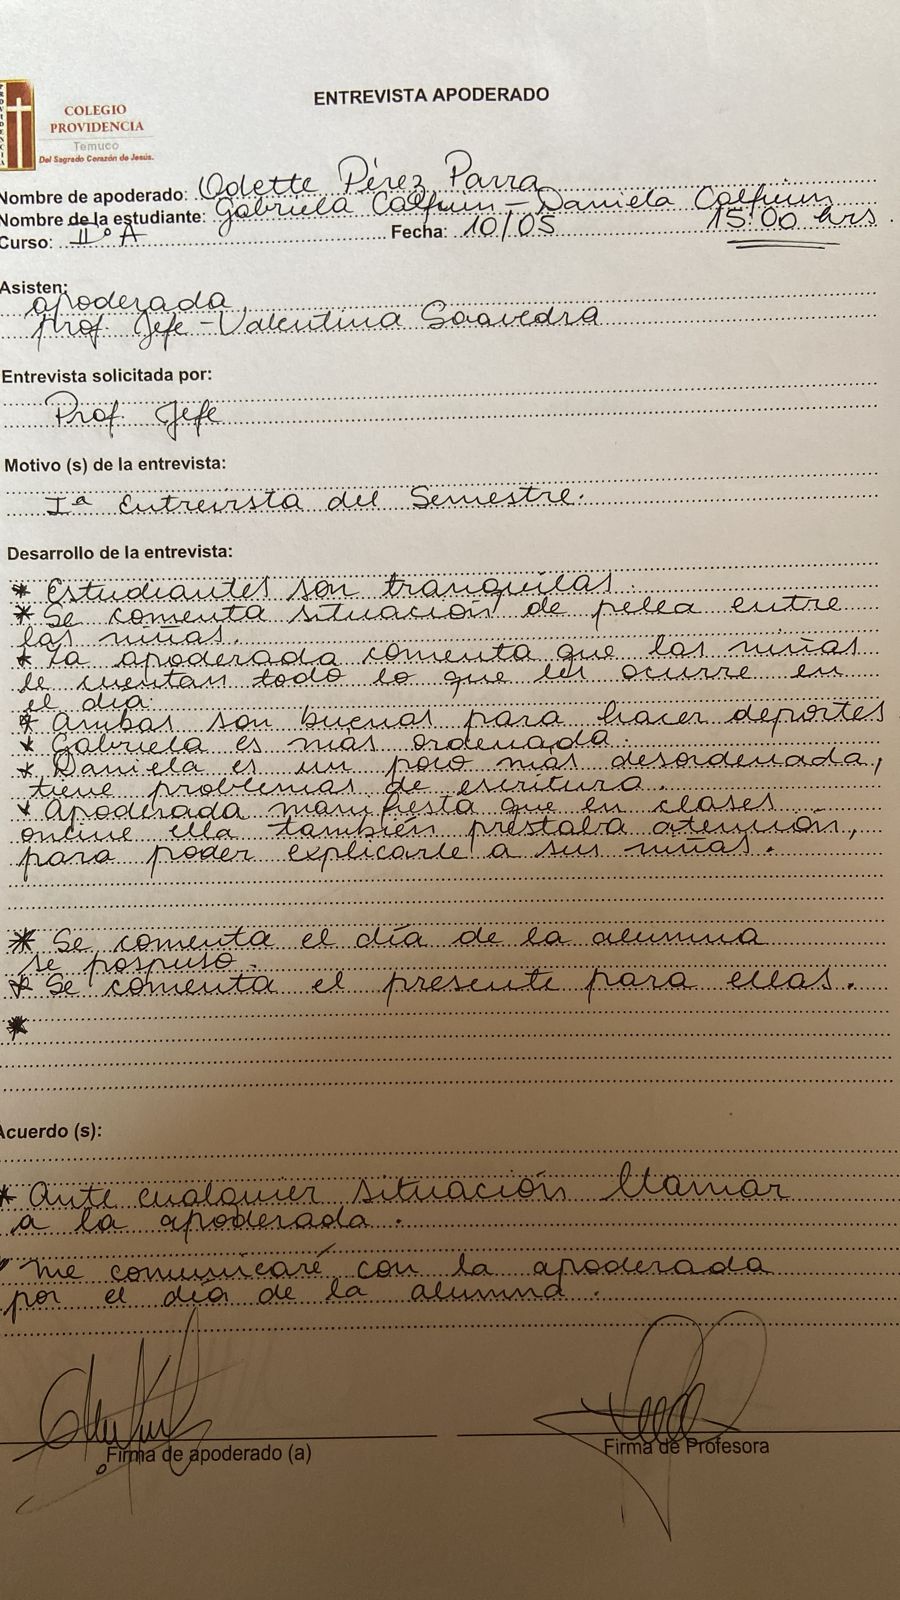 ENTREVISTA APODERADO
PROVIDENCIA
COLEGIO
PROVIDENCIA
Temuco
Del Sagrado Corazón de Jesús.
Nombre de apoderado: Odette Pérez Parra
Nombre de la estudiante: Gabriela Calfuin - Daniela Calfuin
Curso: II° A Fecha: 10/05 15:00 hrs.
Asisten:
apoderada
Prof. Jefe - Valentina Saavedra
Entrevista solicitada por:
Prof. Jefe
Motivo (s) de la entrevista:
Iª Entrevista del Semestre.
Desarrollo de la entrevista:
* Estudiantes son tranquilas.
* Se comenta situación de pelea entre
las niñas.
* La apoderada comenta que las niñas
le cuentan todo lo que les ocurre en
el día.
* Ambas son buenas para hacer deportes
* Gabriela es más ordenada.
* Daniela es un poco más desordenada,
tiene problemas de escritura.
* Apoderada manifiesta que en clases
online ella también prestaba atención,
para poder explicarle a sus niñas.
* Se comenta el día de la alumna
se pospuso.
* Se comenta el presente para ellas.
*
Acuerdo (s):
* Ante cualquier situación llamar
a la apoderada.
* me comunicaré con la apoderada
por el día de la alumna.
Firma de apoderado (a) Firma de Profesora